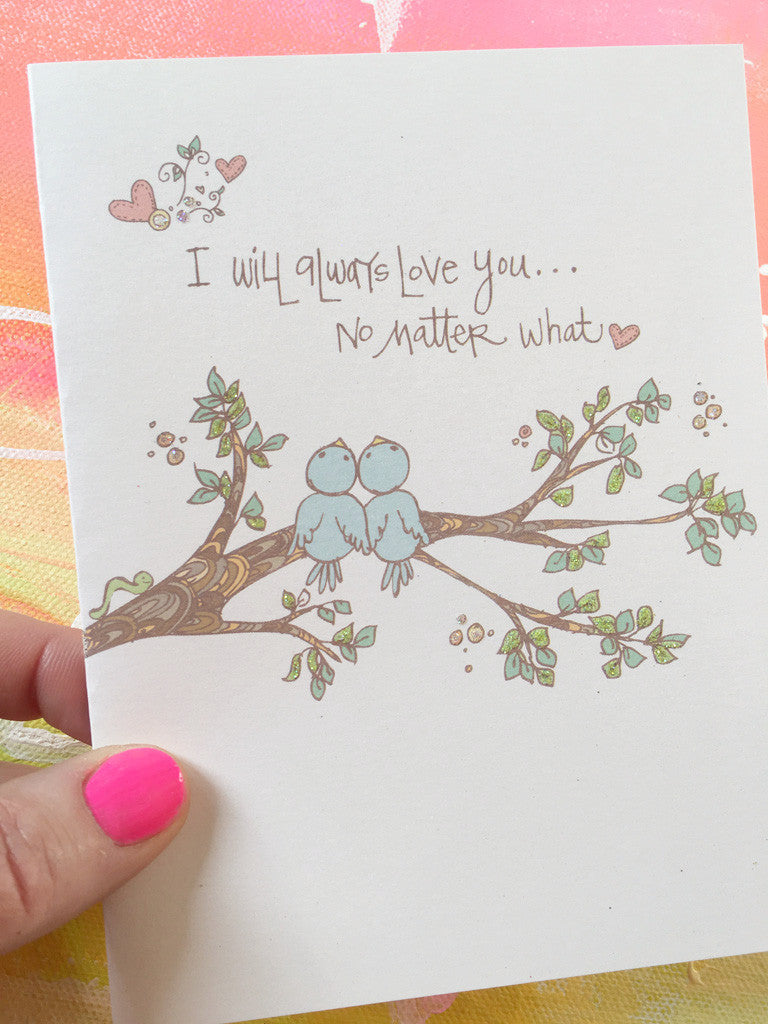 I will always love you...
No matter what